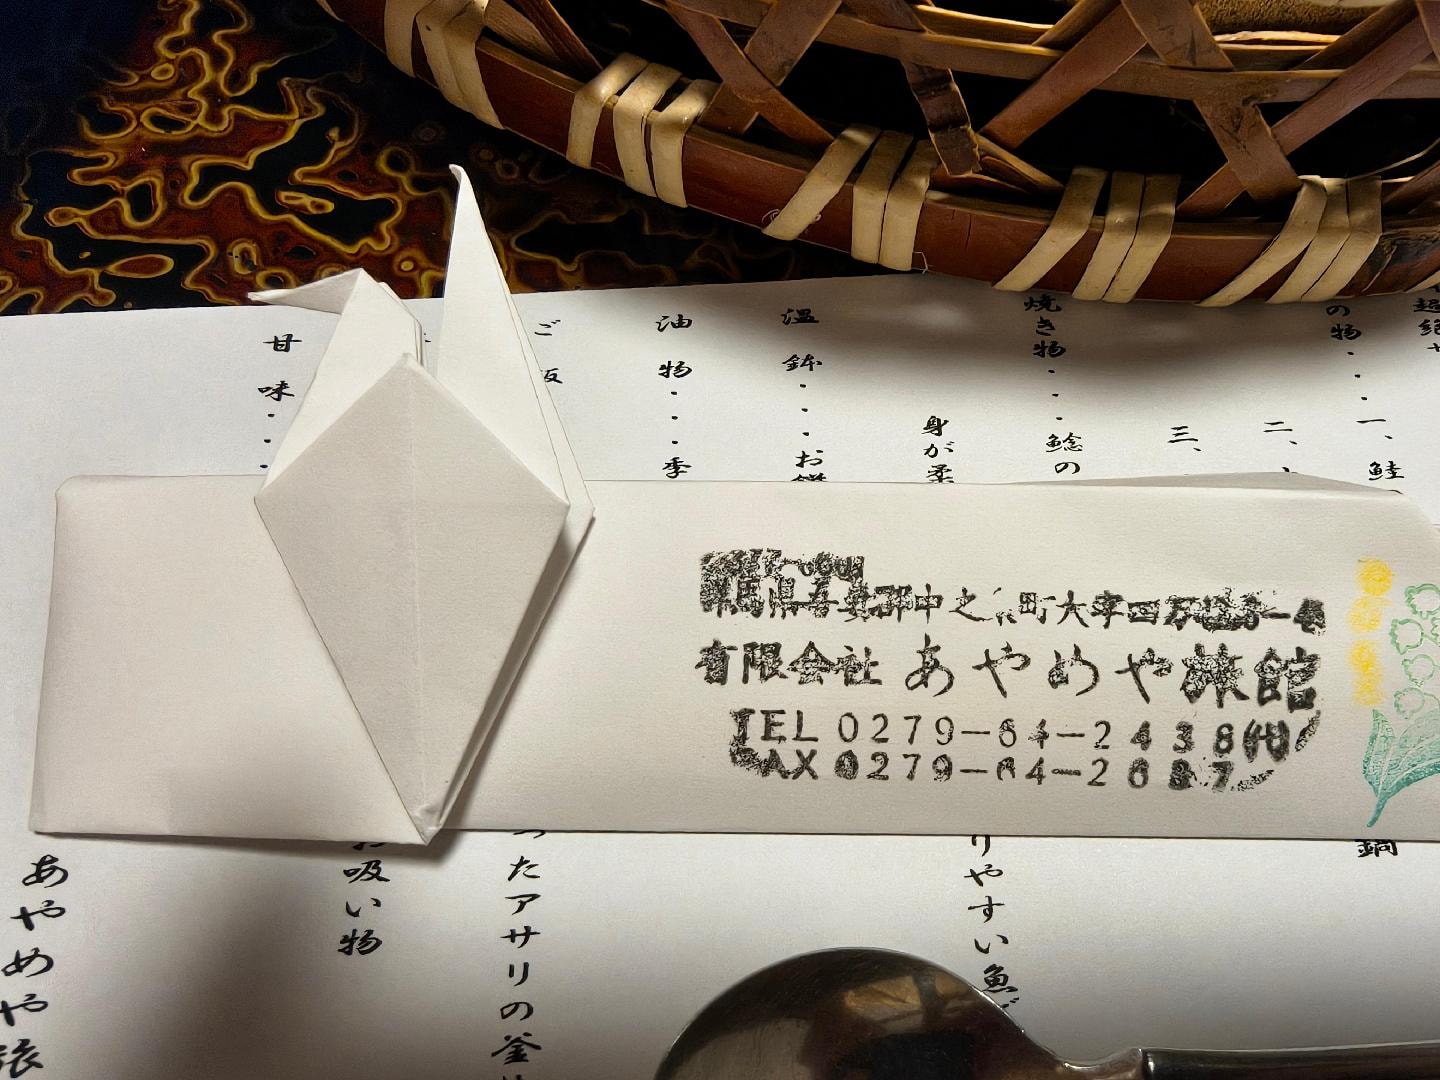 の物・・一、鮭
二、
三、
焼き物・・・鯰の
身が柔
りやすい魚
鍋
温鉢・・・お
油物・・・季
ご飯
ったアサリの釜
お吸い物
甘味・・・
あやめや旅
群馬県吾妻郡中之条町大字四万
有限会社 あやめや旅館
TEL 0279-64-2438(代)
FAX 0279-64-2637